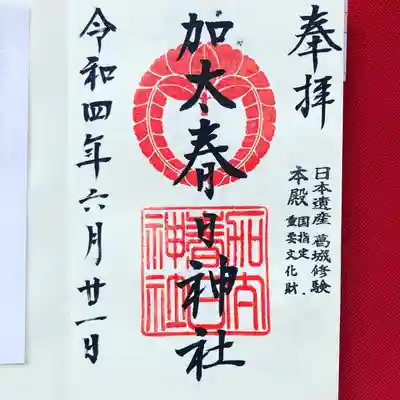 奉拝
日本遺産 葛城修験
本殿 国指定 重要文化財
加太春日神社
加太春日神社
令和四年六月廿一日